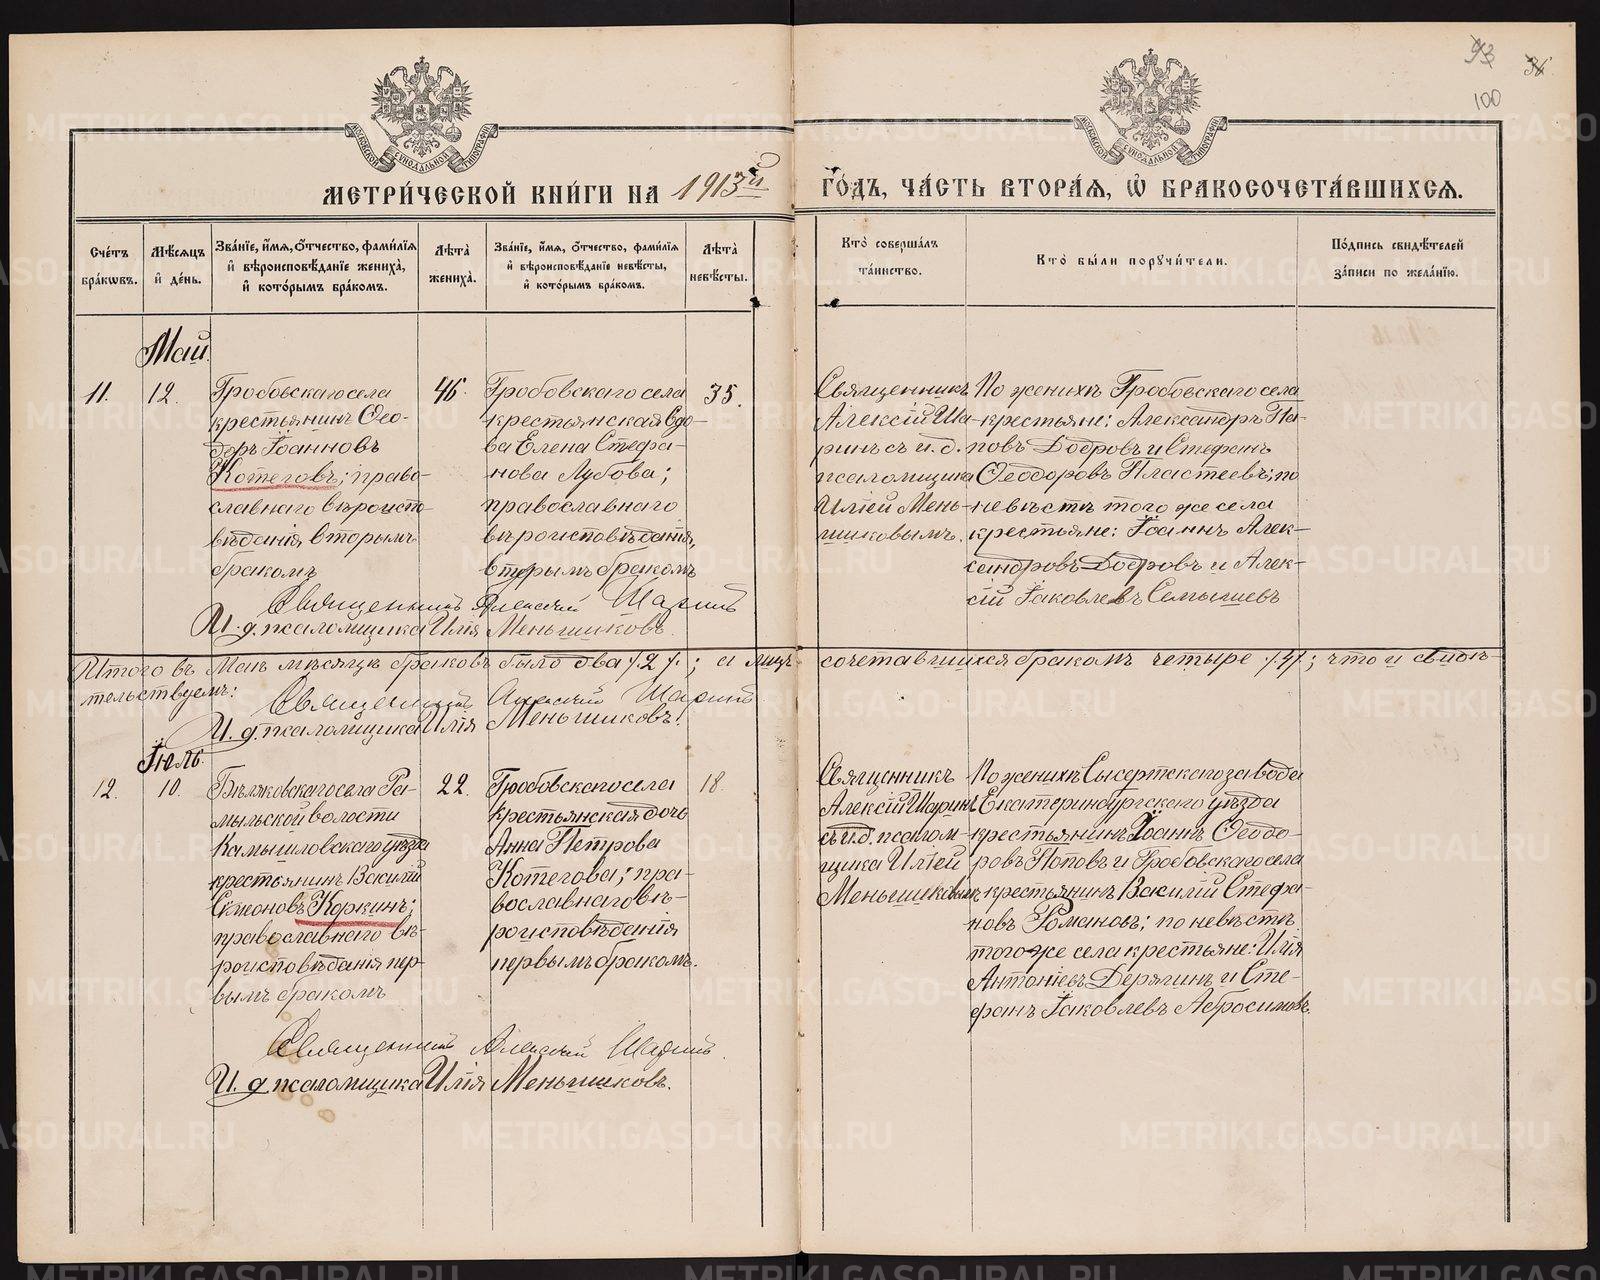 93
36
100
МОСКОВСКОЙ СУНОДАЛЬНОЙ ТИПОГРАФІИ
МОСКОВСКОЙ СУНОДАЛЬНОЙ ТИПОГРАФІИ
МЕТРИ́ЧЕСКОЙ КНИ́ГИ НА 1913й ГО́ДЪ, ЧА́СТЬ ВТОРА́Я, Ѡ҆ БРАКОСОЧЕТА́ВШИХСЯ.
Сче́тъ бра́кѡвъ.
Мѣ́сяцъ и҆ де́нь.
Зва́нїе, и҆́мя, ѻ҆́тчество, фами́лїя и҆ вѣроисповѣ́данїе жениха̀, и҆ кото́рымъ бра́комъ.
Лѣ́та̀ жениха̀.
Зва́нїе, и҆́мя, ѻ҆́тчество, фами́лїя и҆ вѣроисповѣ́данїе невѣ́сты, и҆ кото́рымъ бра́комъ.
Лѣ́та̀ невѣ́сты.
Кто̀ соверша́лъ та́инство.
Кто̀ бы́ли поручи́тели.
По́дпись свидѣ́телей за́писи по жела́нїю.
Май.
11.
12.
Гробовскаго села
крестьянинъ Ѳео-
доръ Іоанновъ
Котеговъ; право-
славнаго вѣроиспо-
вѣданія, вторымъ
бракомъ
46.
Гробовскаго села
крестьянская вдо-
ва Елена Стефа-
нова Лубова;
православнаго
вѣроисповѣданія,
вторымъ бракомъ
35.
Священникъ
Алексій Ша-
ринъ съ и.д.
псаломщика
Иліей Мень-
шиковымъ.
По женихѣ Гробовскаго села
крестьяне: Александръ Па-
повъ Додровъ и Стефанъ
Ѳеодоровъ Пластеевъ; по
невѣстѣ того же села
крестьяне: Іоаннъ Алек-
сандровъ Додровъ и Алек-
сій Іаковлевъ Семышевъ
Священникъ Алексій Шаринъ
И. д. псаломщика Илія Меньшиковъ.
Итого въ Маѣ мѣсяцѣ браковъ было два /.2/.; а лицъ сочетавшихся бракомъ четыре /.4/.; что и свидѣ-
тельствуемъ:
Священникъ Алексій Шаринъ
И. д. псаломщика Илія Меньшиковъ.
Іюль.
12.
10.
Бѣляковскаго села Ра-
мыльской волости
Камышловскаго уѣзда
крестьянинъ Василій
Симоновъ Коркинъ;
православнаго вѣ-
роисповѣданія пер-
вымъ бракомъ
22.
Гробовскаго села
крестьянская дочь
Анна Петрова
Котегова; пра-
вославнаго вѣ-
роисповѣданія
первымъ бракомъ.
18.
Священникъ
Алексій Шаринъ
съ и.д. псалом-
щика Иліей
Меньшиковымъ
По женихѣ Сысертскаго завода
Екатеринбургскаго уѣзда
крестьянинъ Іоаннъ Ѳеодо-
ровъ Поповъ и Гробовскаго села
крестьянинъ Василій Стефа-
новъ Романовъ; по невѣстѣ
того же села крестьяне: Илія
Антоніевъ Дерягинъ и Сте-
фанъ Іаковлевъ Абросимовъ.
Священникъ Алексій Шаринъ.
И. д. псаломщика Илія Меньшиковъ.
METRIKI.GASO-URAL.RU